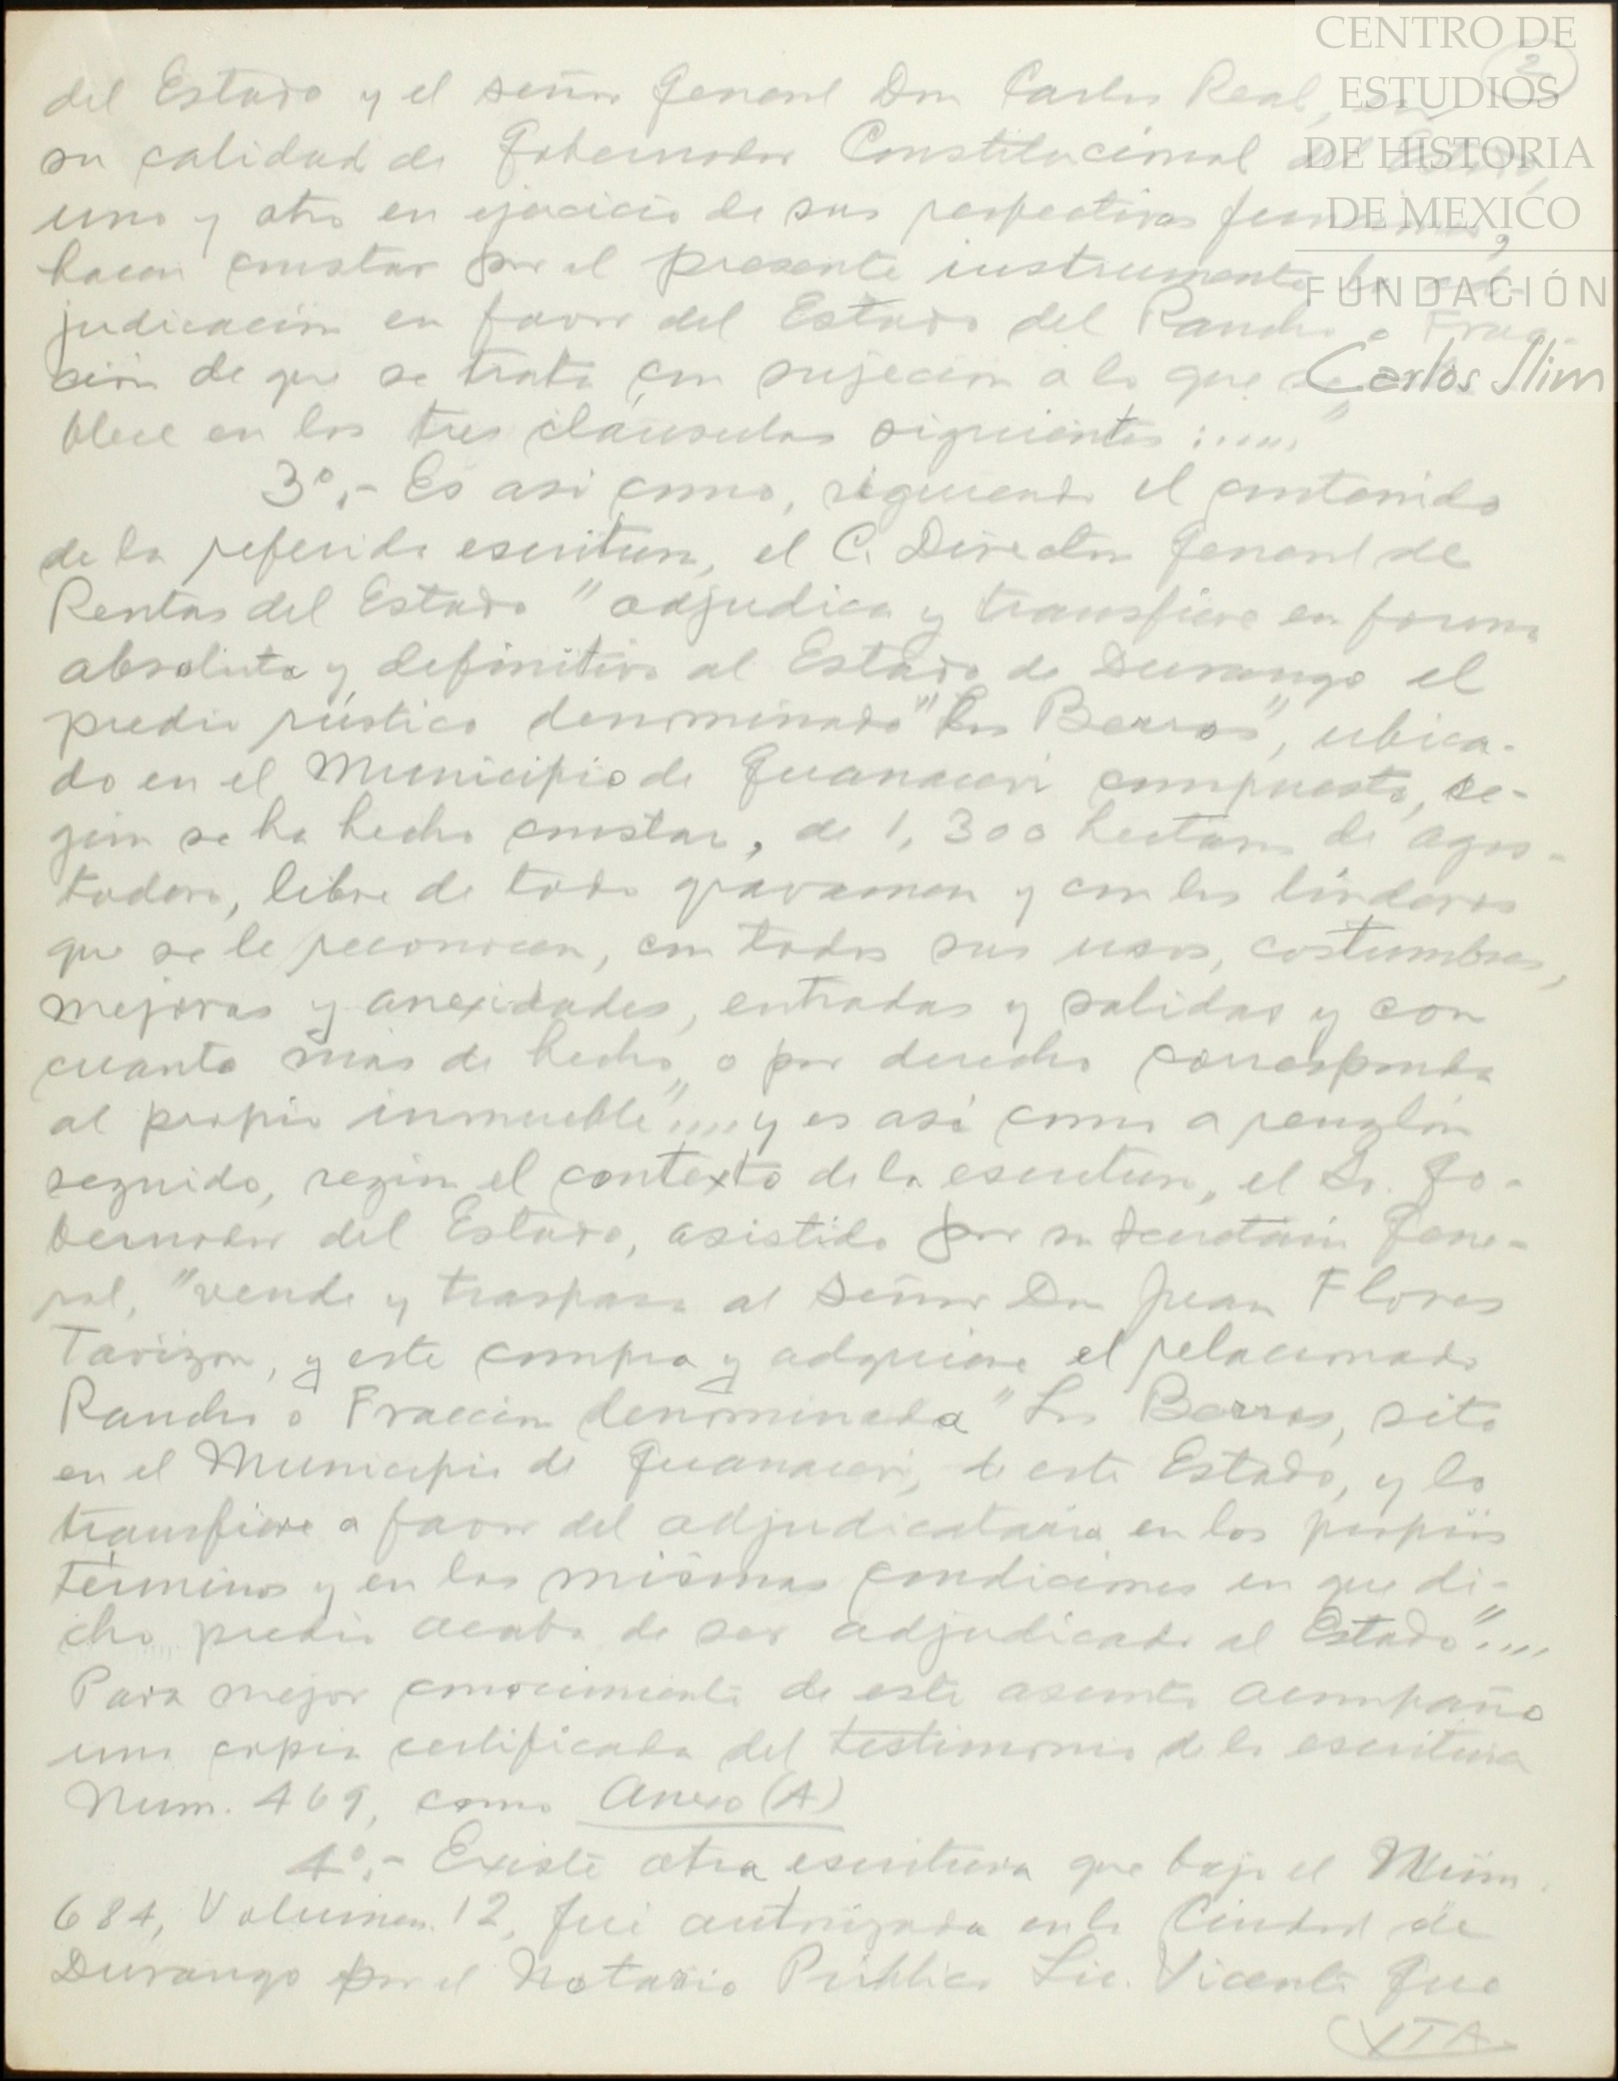 CENTRO DE
ESTUDIOS
DE HISTORIA
DE MEXICO
FUNDACIÓN
Carlos Slim
2
del Estado y el señor General Don Carlos Real, en
su calidad de Gobernador Constitucional del
uno y otro en ejercicio de sus respectivas funciones,
hacen constar por el presente instrumento la ad-
judicación en favor del Estado del Rancho o Frac-
ción de que se trata con sujeción a lo que
blece en las tres cláusulas siguientes:....."
3º.- Es asi como, siguiendo el contenido
de la referida escritura, el C. Director General de
Rentas del Estado "adjudica y transfiere en forma
absoluta y definitiva al Estado de Durango el
predio rústico denominado "Los Berros", ubica-
do en el Municipio de Guanaceví compuesto, se-
gún se ha hecho constar, de 1,300 hectaras de agos-
tadero, libre de todo gravamen y con los linderos
que se le reconocen, con todos sus usos, costumbres,
mejoras y anexidades, entradas y salidas y con
cuanto más de hecho o por derecho corresponda
al propio inmueble".... y es asi como a renglón
seguido, según el contexto de la escritura, el Sr. Go-
bernador del Estado, asistido por su Secretario Gene-
ral, "vende y traspasa al Señor Don Juan Flores
Tarizon, y este compra y adquiere el relacionado
Rancho o Fracción denominada "Los Berros, sito
en el Municipio de Guanaceví, de este Estado, y lo
transfiere a favor del adjudicatario en los propios
términos y en las mismas condiciones en que di-
cho predio acaba de ser adjudicado al Estado"....
Para mejor conocimiento de este asunto acompaño
una copia certificada del testimonio de la escritura
Num. 469, como Anexo (A)
4º.- Existe otra escritura que bajo el Núm.
684, Volumen 12, fué autorizada en la Ciudad de
Durango por el Notario Público Lic. Vicente Gue
VTA